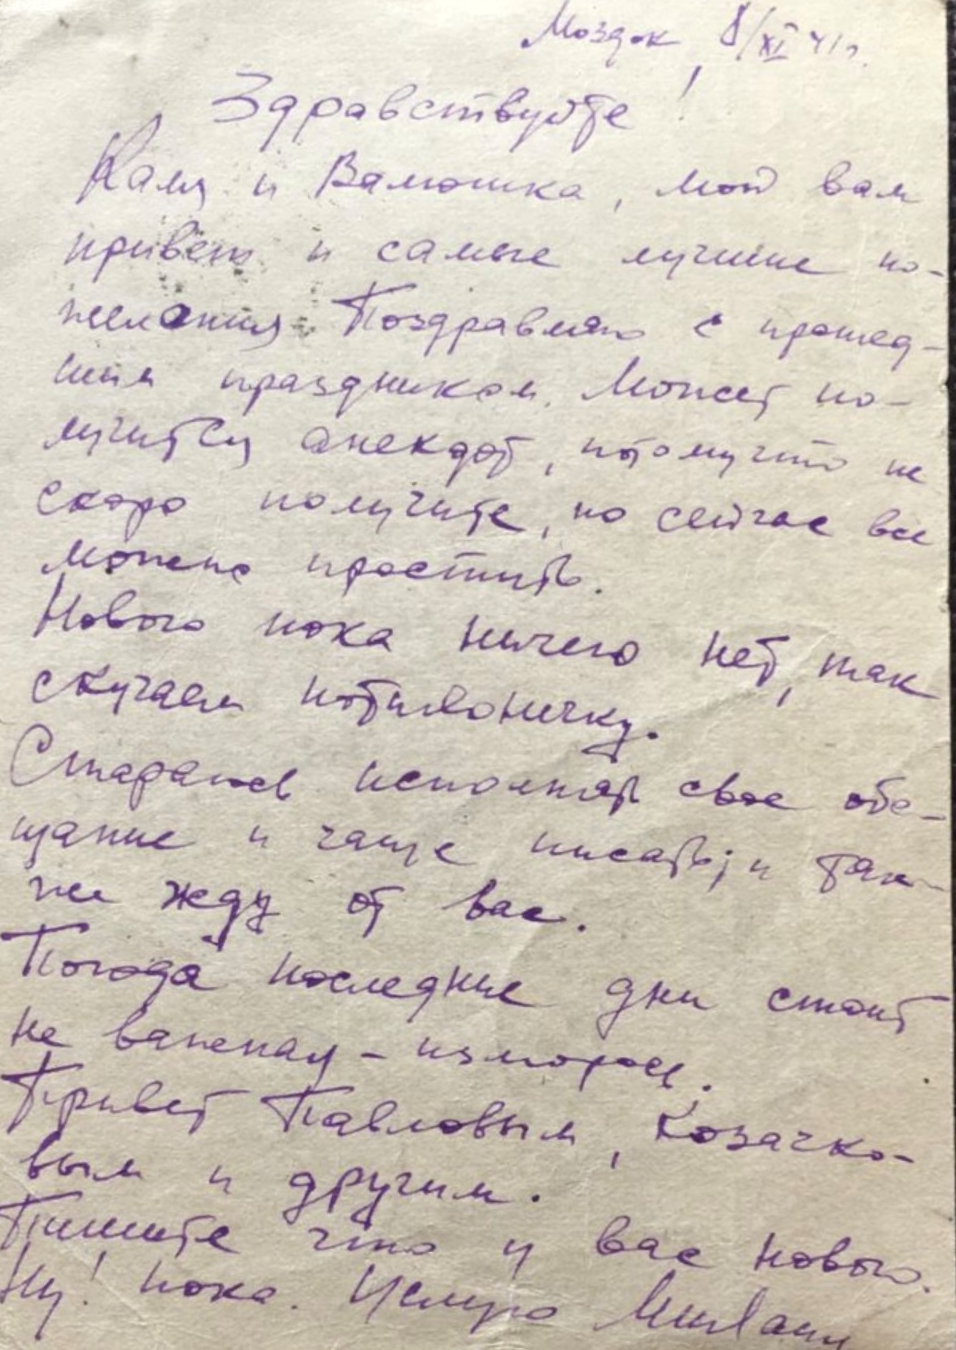 Моздок 8/XI 41г.
Здравствуйте!
Каля и Валюшка, мой вам
привет и самые лучшие по-
желания Поздравляю с прошед-
шим праздником. Может по-
лучится анекдот, потому что не
скоро получите, но сейчас все
можно простить.
Нового пока ничего нет, так
скучаем потихоничку.
Стараюсь исполнять свое обе-
щание и чаще писать, и так-
же жду от вас.
Погода последние дни стоит
не важная –
Привет Павловым, Козачко-
вым и другим.
Пишите что у вас нового.
Ну! пока. Целую